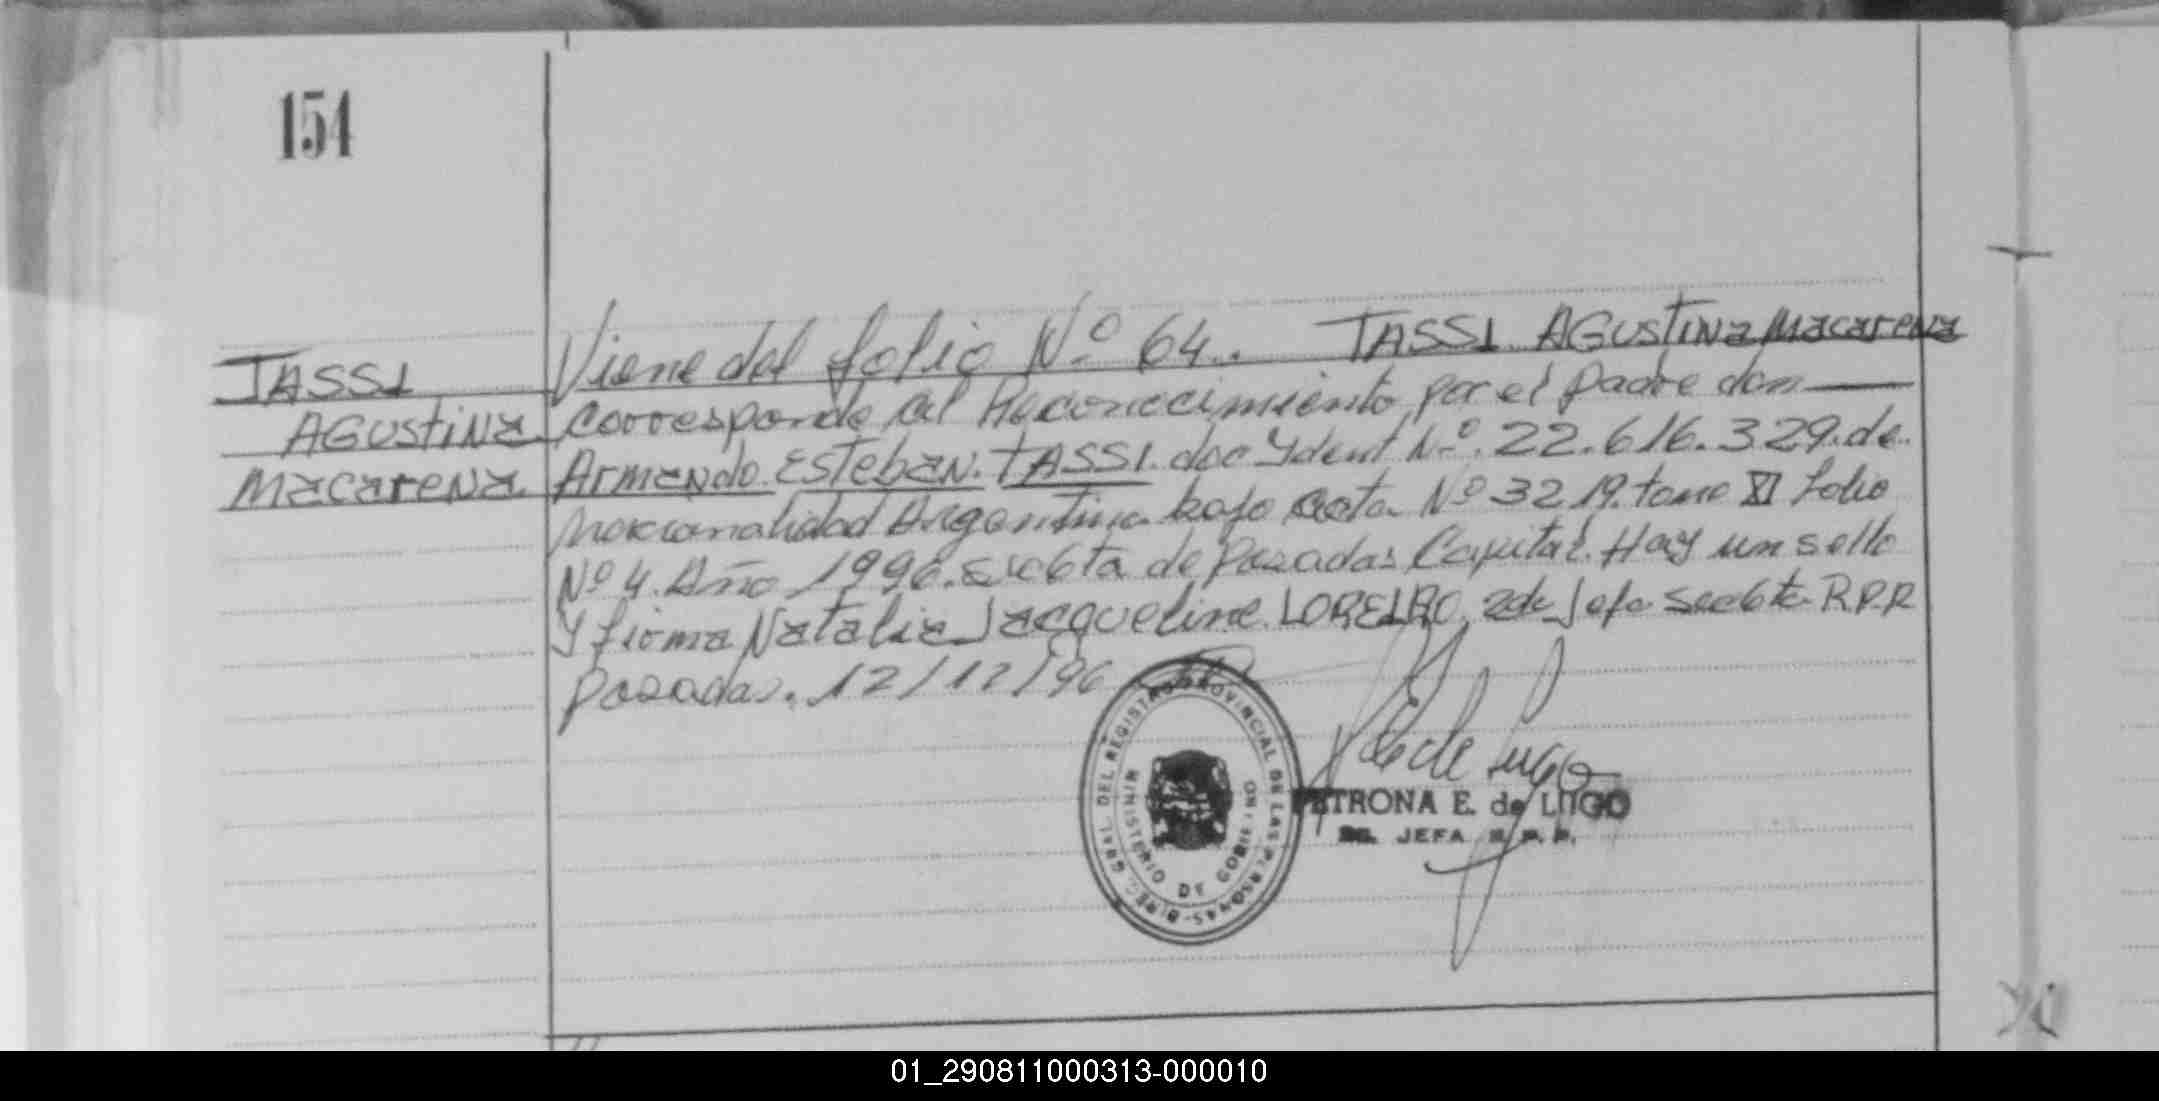 154
TASSI
AGUSTINA
MACARENA
Viene del folio Nº 64. TASSI AGUSTINA MACARENA
Corresponde al Reconocimiento por el padre don
Armando Esteban TASSI. doc Ydent Nº. 22.616.329. de
nacionalidad Argentina bajo acta Nº 3219. tomo XI folio
Nº 4. Año 1996. de Posadas Capital. Hay un sello
Y firma Natalia Jacqueline LOREIRO, 2da Jefa R.P.P
Posadas. 12/12/96
DIREC. GRAL. DEL REGISTRO PROVINCIAL DE LAS PERSONAS
MINISTERIO DE GOBIERNO
de Lugo
PETRONA E. de LUGO
JEFA R. P. P.
01_290811000313-000010